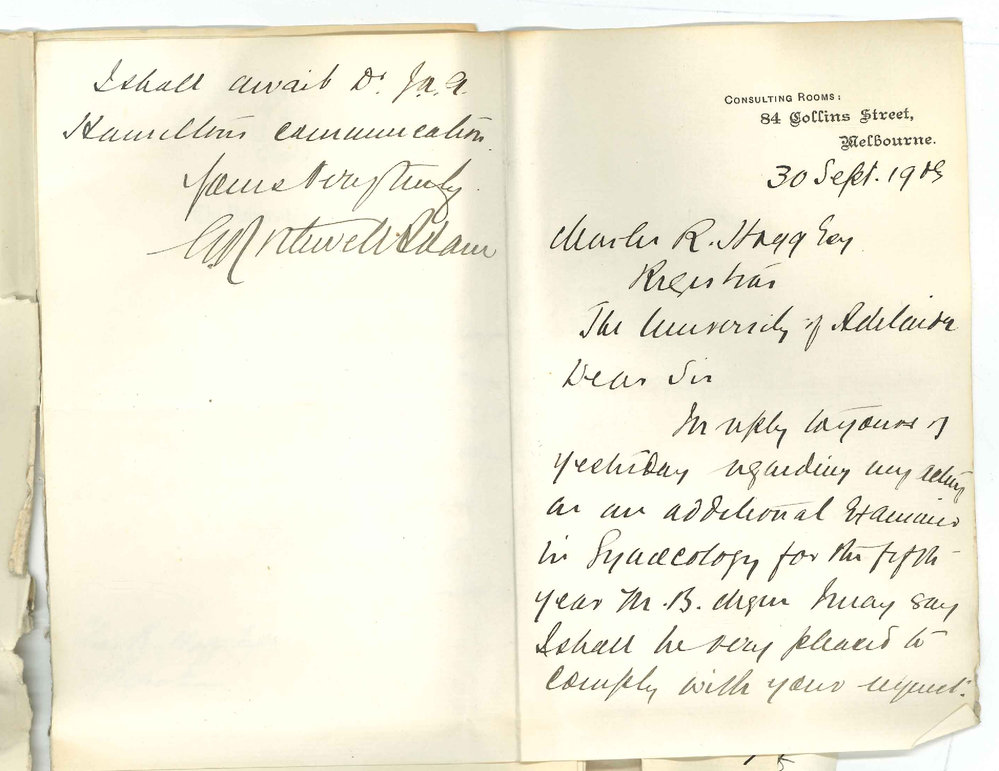 CONSULTING ROOMS:
84 Collins Street,
Melbourne.
30 Sept. 19
Charles R. Hogg Esq
Registrar
The University of Adelaide
Dear Sir
In reply to yours of
yesterday regarding my acting
as an additional Examiner
in Gynaecology for the fifth
year M.B. degree I may say
I shall be very pleased to
comply with your request.
I shall await Dr.
Hamiltons communication
Yours very truly
Rothwell Adam